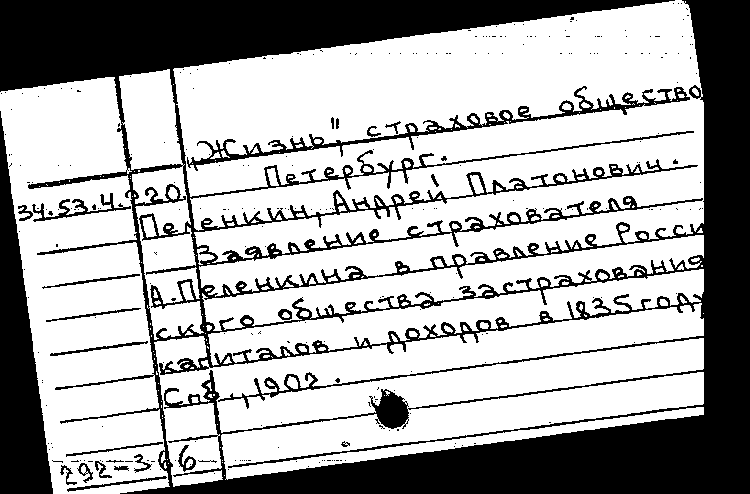 „Жизнь", страховое общество
Петербург.
34.53.4.220
Пеленкин, Андрей Платонович.
Заявление страхователя
А.Пеленкина в правление Росси
ского общества застрахования
капиталов и доходов в 1835 году
Спб., 1902.
292-366